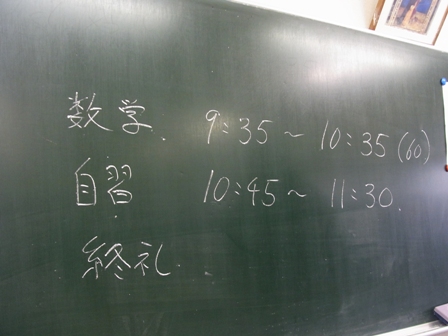 数学. 9:35～10:35(60)
自習 10:45～11:30.
終礼.